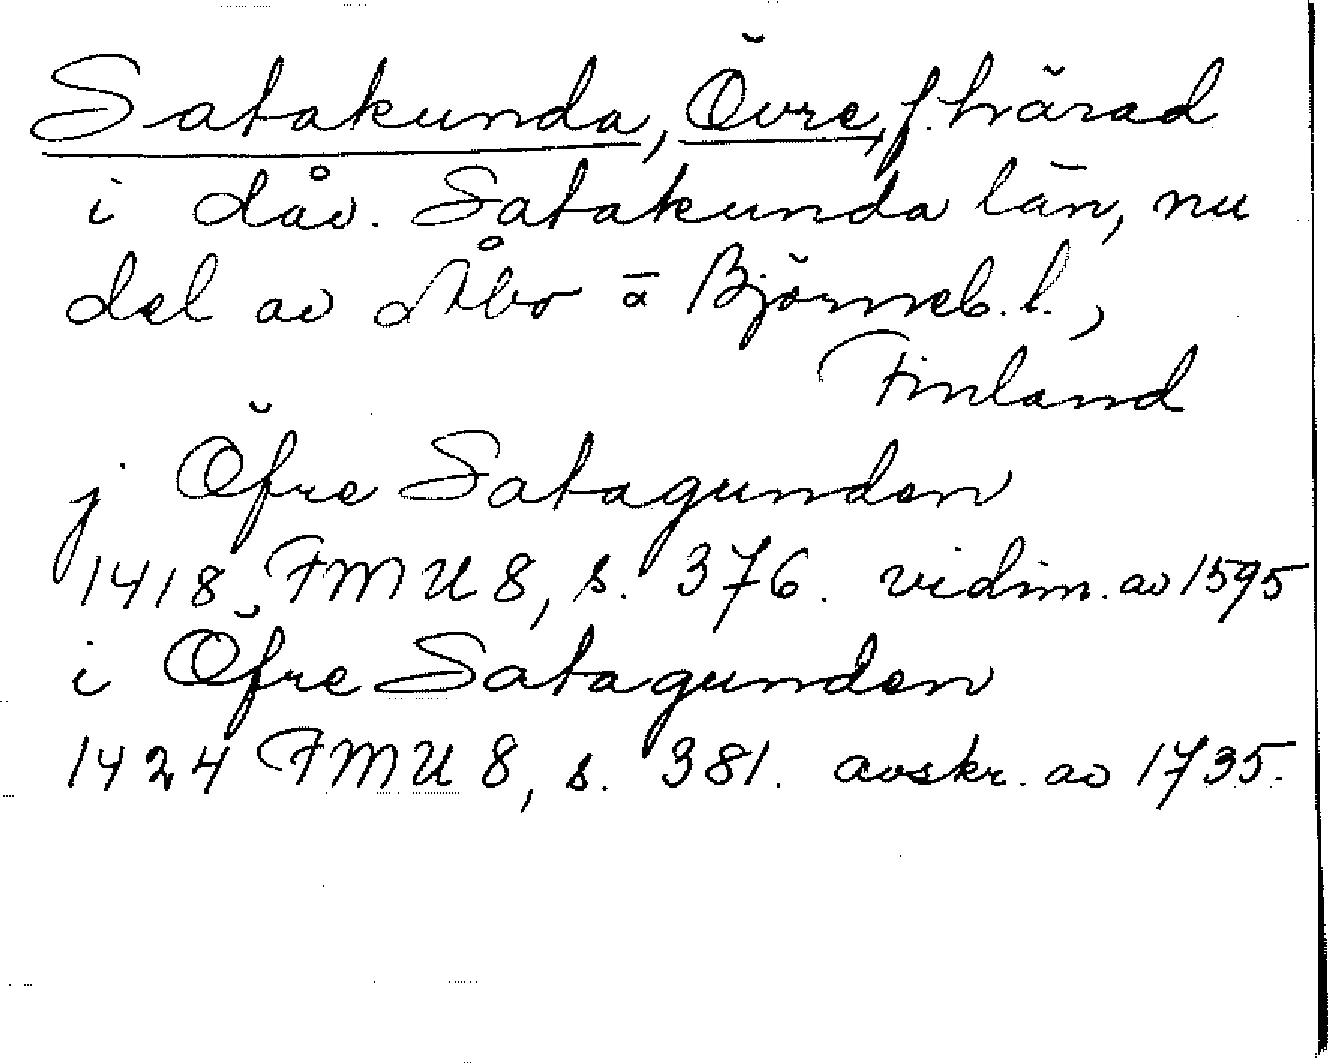 Satakunda, Övre, f. härad
i dåv. Satakunda län, nu
del av Åbo ö Björneb. l.,
Finland
j Öfre Satagunden
1418 FMU 8, s. 376. vidim. av 1595
i Öfre Satagunden
1424 FMU 8, s. 381. avskr. av 1735.